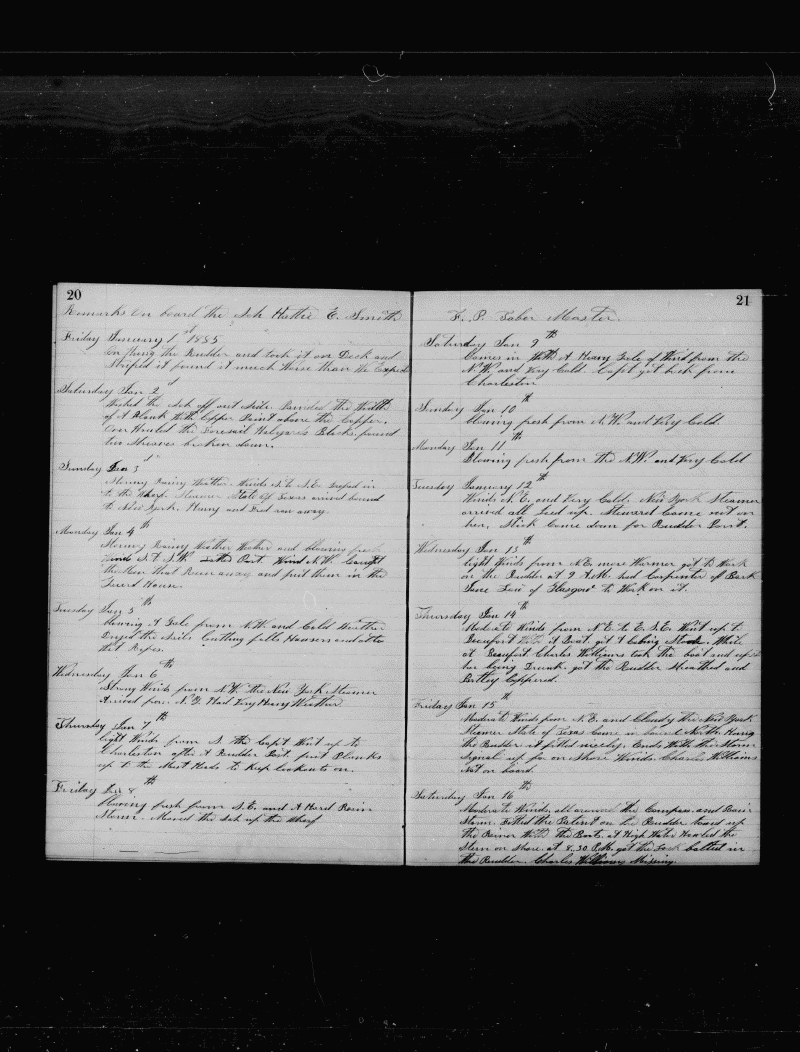 20
Remarks on board the Sch Hattie E. Smith
Friday January 1st 1885
the Rudder and took it on Deck and
Striped it found it much Worse than We Expect
Saturday Jan 2
Washed the Sch off out Side. Painted the Width
of A Plank With Copper Paint above the Copper.
Over Hauled the Foresail Halyards Blocks, found
two Sheaves broken down.
Sunday Jan 3
Stormy Rainy Weather. Winds N.E.
to the Wharf. Steamer State of Texas arrived bound
to New York. Henry and Fred ran away.
Monday Jan 4th
Stormy Rainy Weather and blowing fresh
Winds S.E. S.W. Latter Part. Wind N.W. Caught
the Men that Ran away and put them in the
Guard House.
Tuesday Jan 5th
Blowing A Gale from N.W. and Cold Weather
the Sails Hawsers and other
Ropes.
Wednesday Jan 6th
Strong Winds from N.W. the New York Steamer
Arrived from N.Y. Had Very Heavy Weather
Thursday Jan 7th
light Winds from S. the Capt Went up to
Charleston after A Rudder Post put Planks
up to the Mast Heads to Keep lookouts on.
Friday Jan 8th
Blowing fresh from S.E. and A Hard Rain
Storm. Moved the Sch up the Wharf
21
F. P. Tabor Master.
Saturday Jan 9th
Comes in With A Heavy Gale of Wind from the
N.W. and Very Cold. Capt got back from
Charleston
Sunday Jan 10th
Blowing fresh from N.W. and Very Cold.
Monday Jan 11th
Blowing fresh from the N.W. and Very Cold
Tuesday January 12th
Winds N.E. and Very Cold. New York Steamer
arrived all Iced up. Steward Came out on
her, Stick Came down for Rudder Post.
Wednesday Jan 13th
light Winds from N.E. more Warmer got to Work
on the Rudder at 9 A.M. had Carpenter of Bark
Jane Law of Glasgow to Work on it.
Thursday Jan 14th
Moderate Winds from N.E. to E.S.E. Went up to
Beaufort With A Boat. got A Stock. While
at Beaufort Charles Williams took the boat
being Drunk. got the Rudder Sheathed and
Partly Coppered.
Friday Jan 15th
Moderate Winds from N.E. and Cloudy the New York
Steamer State of Texas Came in bound North. Hung
the Rudder it fitted nicely. Ends With the Storm
Signal up for on Shore Winds. Charles Williams
Not on board.
Saturday Jan 16th
Moderate Winds all around the Compass. and Rain
Storm. Fitted the Patent on the Rudder towed up
the River With the Boats. at High Water Hauled the
Stern on Shore. at 8.30 P.M. got the Lock bolted in
the Rudder. Charles Williams Missing.